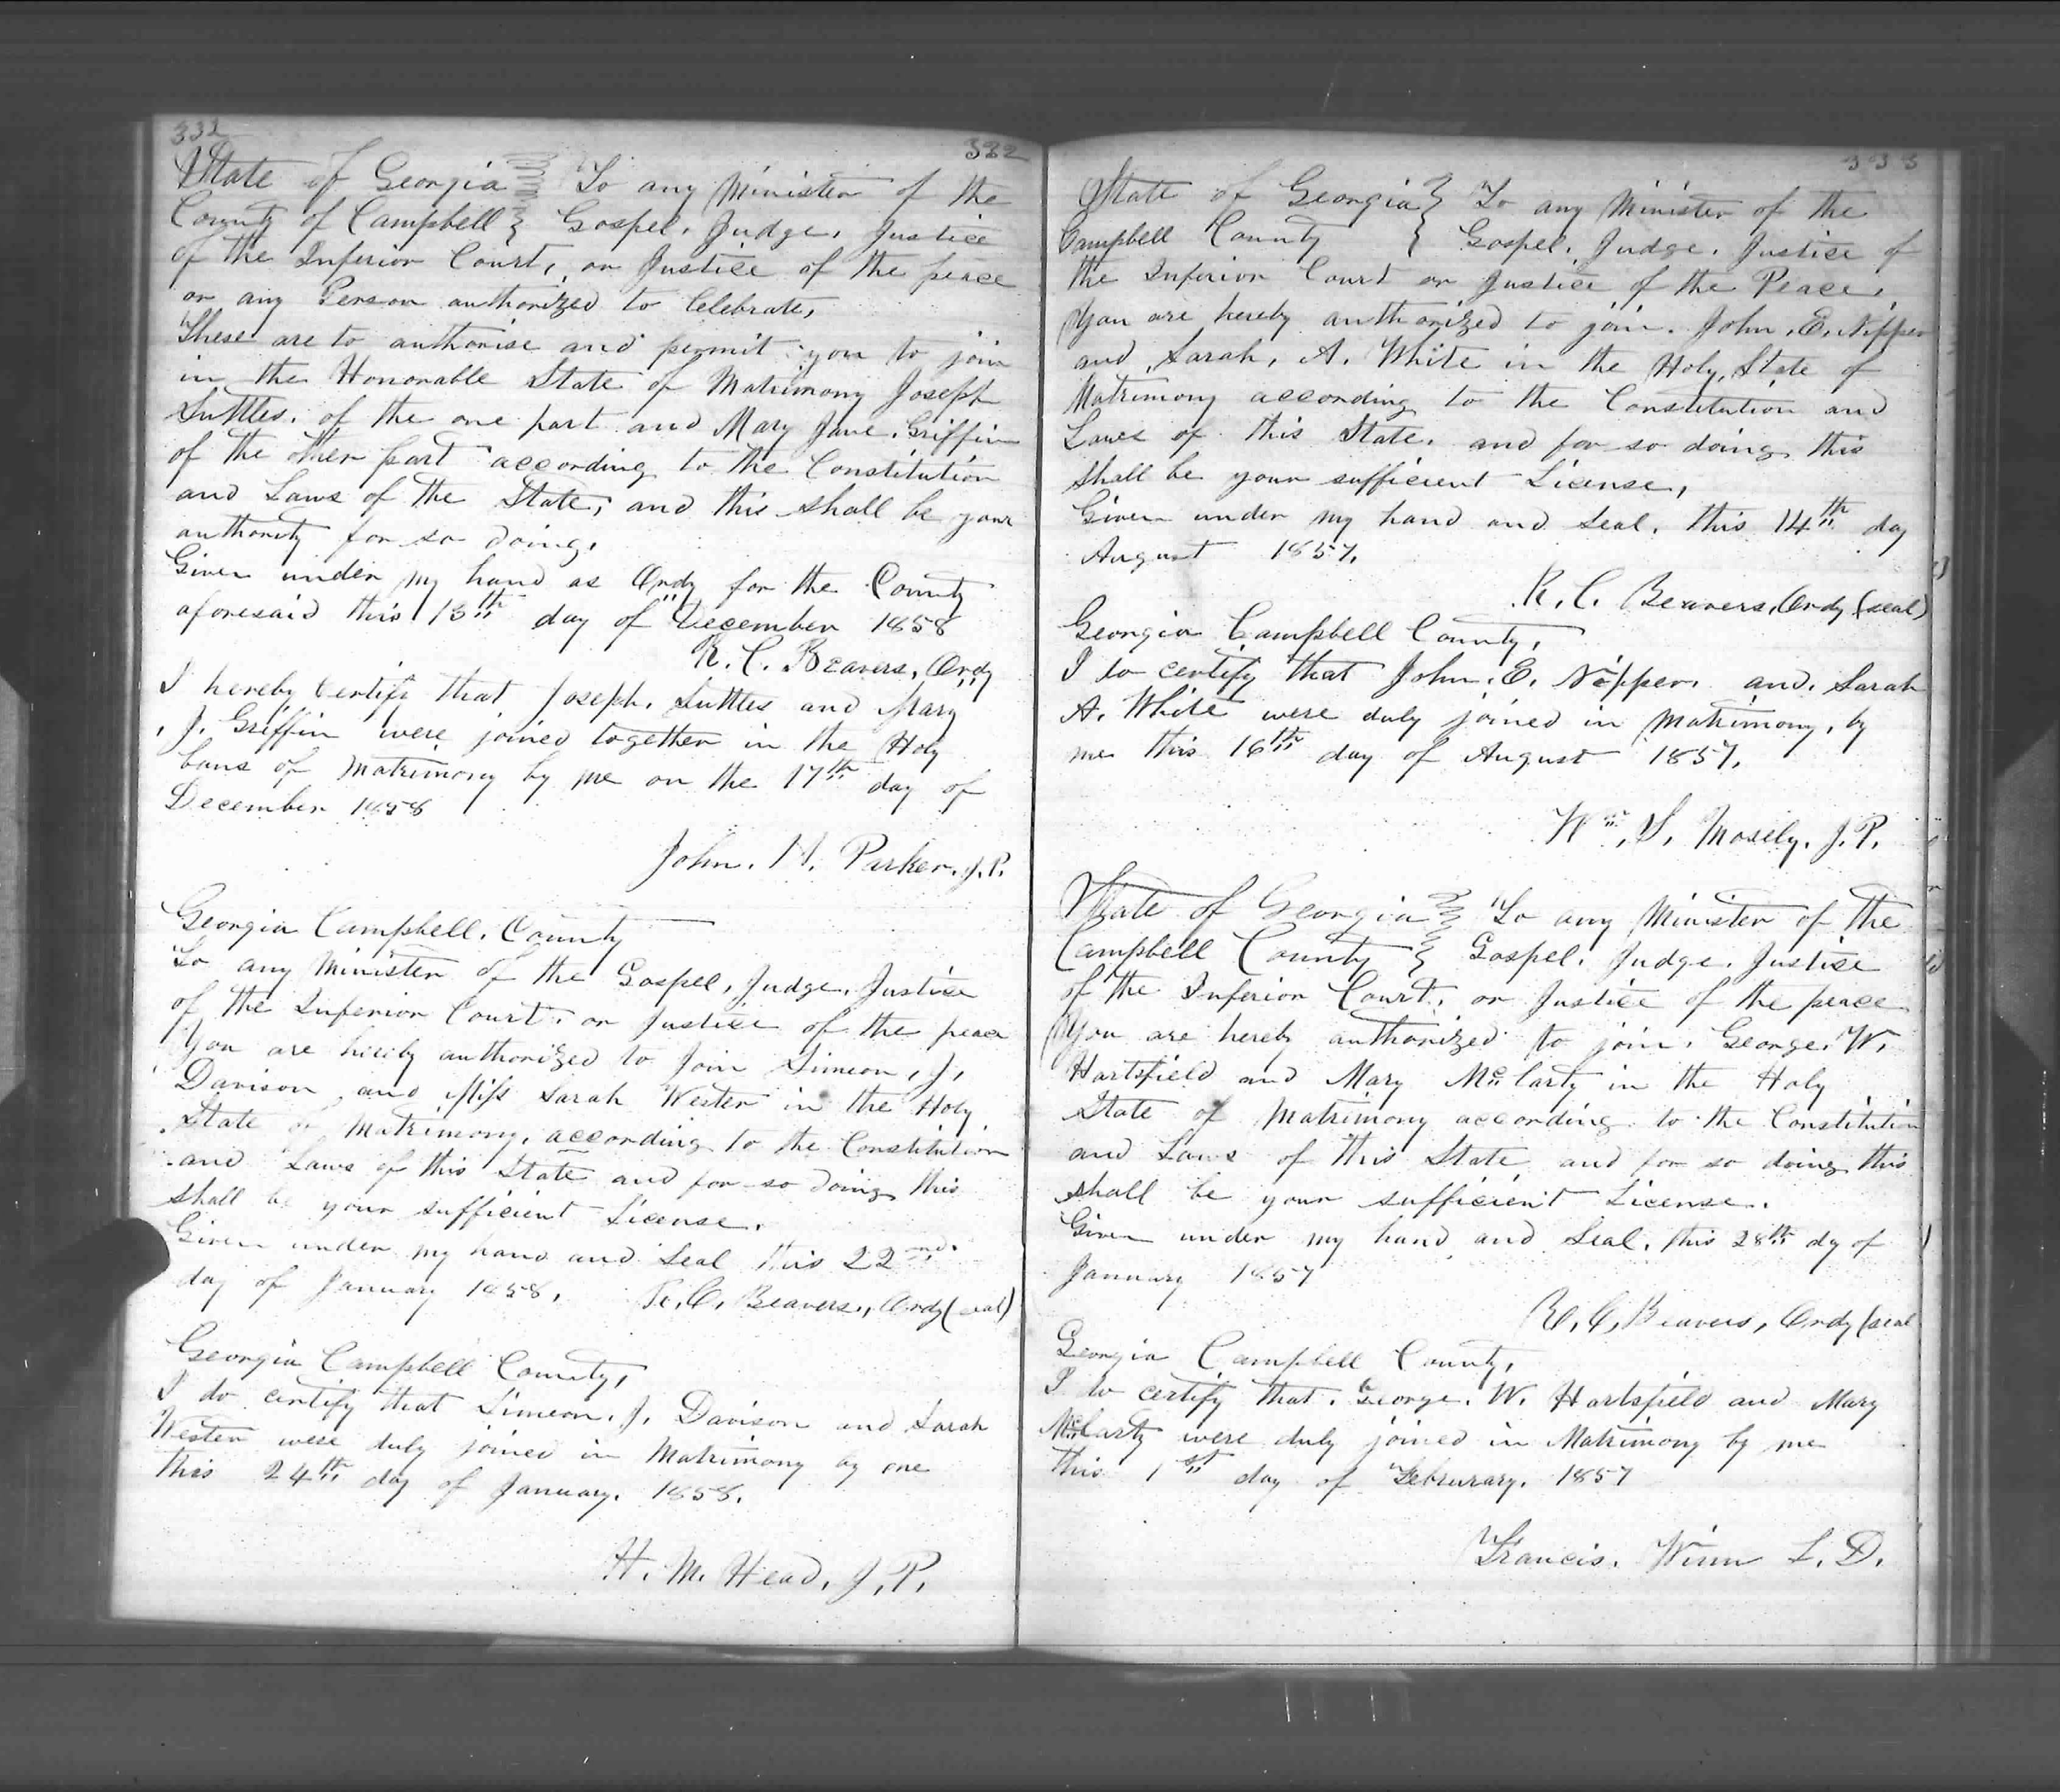 332
332
State of Georgia } To any Minister of the
County of Campbell } Gospel, Judge, Justice
of the Inferior Court, or Justice of the peace
or any Person authorized to Celebrate,
These are to authorise and permit you to join
in the Honorable State of Matrimony Joseph
Suttles, of the one part and Mary Jane, Griffin
of the other part according to the Constitution
and Laws of the State, and this shall be your
authority for so doing,
Given under my hand as Ordy for the County
aforesaid this 13th day of December 1858
R. C. Beavers, Ordy
I hereby Certify that Joseph, Suttles and Mary
J. Griffin were joined together in the Holy
bans of Matrimony by me on the 17th day of
December 1858
John. H. Parker, J.P.
Georgia Campbell, County
To any Minister of the Gospel, Judge, Justice
of the Inferior Court, or Justice of the peace
You are hereby authorized to Join Simeon, J,
Davison and Miss Sarah Wester in the Holy
State of Matrimony, according to the Constitution
and Laws of this State and for so doing this
shall be your sufficient License,
Given under my hand and Seal this 22nd
day of January 1858, R. C. Beavers, Ordy (seal)
Georgia Campbell County,
I do certify that Simeon, J. Davison and Sarah
Wester were duly joined in Matrimony by me
this 24th day of January, 1858.
H. M. Head, J.P.
333
State of Georgia } To any Minister of the
Campbell County } Gospel, Judge, Justice of
the Inferior Court or Justice of the Peace,
You are hereby authorized to join, John, E, Nipper
and, Sarah, A. White in the Holy, State of
Matrimony according to the Constitution and
Laws of this State, and for so doing this
shall be your sufficient License,
Given under my hand and Seal, this 14th day
August 1857,
R. C. Beavers, Ordy (seal)
Georgia Campbell County,
I do certify that John, E, Nipper, and, Sarah
A. White were duly joined in Matrimony, by
me this 16th day of August 1857,
Wm, S, Mosely, J.P.
State of Georgia } To any Minister of the
Campbell County } Gospel, Judge, Justise
of the Inferior Court, or Justice of the peace
You are hereby authorized to join, George, W,
Hartsfield and Mary Mclarty in the Holy
State of Matrimony according to the Constitution
and Laws of this State and for so doing this
shall be your sufficient License.
Given under my hand and Seal, this 28th dy of
January 1857
R, C, Beavers, Ordy (seal
Georgia Campbell County,
I do certify that, George, W. Hartsfield and Mary
Mclarty were duly joined in Matrimony by me
this 1st day of Februrary, 1857
Francis, Winn L. D.